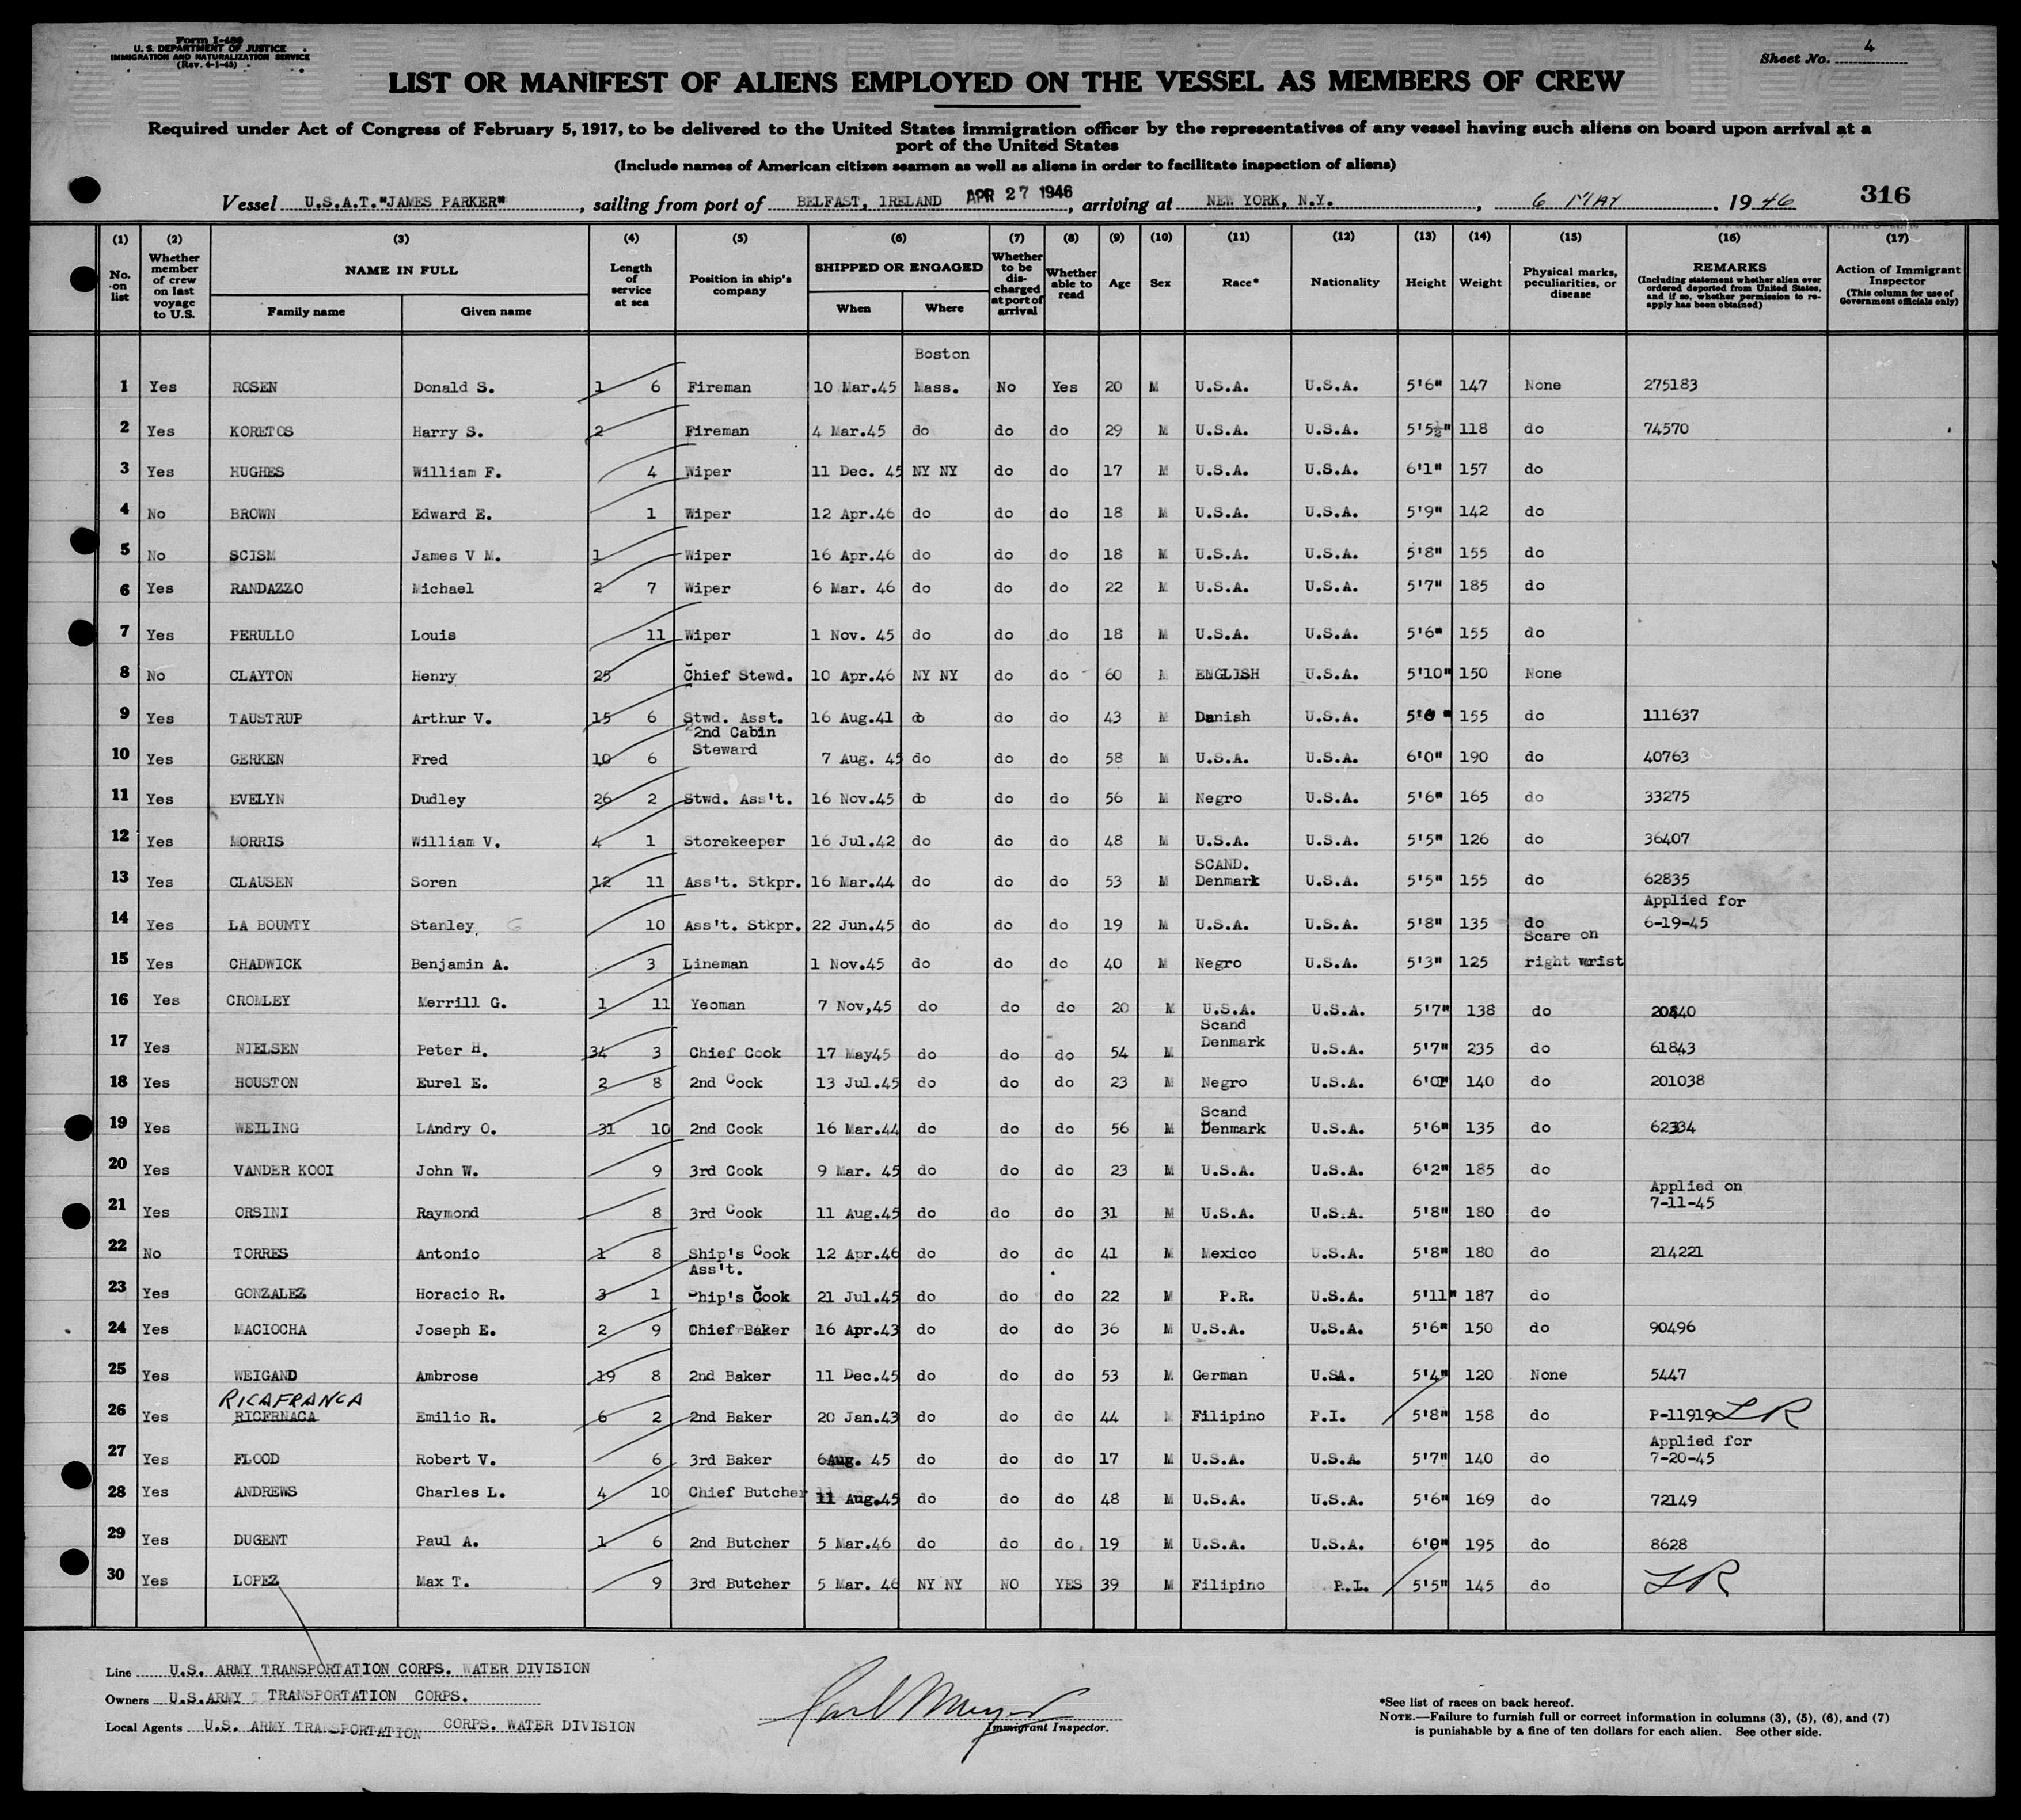 Form I-489
U. S. DEPARTMENT OF JUSTICE
IMMIGRATION AND NATURALIZATION SERVICE
(Rev. 4-1-45)
Sheet No. 4
LIST OR MANIFEST OF ALIENS EMPLOYED ON THE VESSEL AS MEMBERS OF CREW
Required under Act of Congress of February 5, 1917, to be delivered to the United States immigration officer by the representatives of any vessel having such aliens on board upon arrival at a
port of the United States
(Include names of American citizen seamen as well as aliens in order to facilitate inspection of aliens)
Vessel U.S.A.T."JAMES PARKER", sailing from port of BELFAST, IRELAND APR 27 1946, arriving at NEW YORK, N.Y., 6 MAY, 1946 316
(1) (2) (3) (4) (5) (6) (7) (8) (9) (10) (11) (12) (13) (14) (15) (16) (17)
No. on list
Whether member of crew on last voyage to U.S.
NAME IN FULL
Family name
Given name
Length of service at sea
Position in ship's company
SHIPPED OR ENGAGED
When
Where
Whether to be discharged at port of arrival
Whether able to read
Age
Sex
Race*
Nationality
Height
Weight
Physical marks, peculiarities, or disease
REMARKS
(Including statement whether alien ever ordered deported from United States, and if so, whether permission to reapply has been obtained)
Action of Immigrant Inspector
(This column for use of Government officials only)
Boston
1 Yes ROSEN Donald S. 1 6 Fireman 10 Mar.45 Mass. No Yes 20 M U.S.A. U.S.A. 5'6" 147 None 275183
2 Yes KORETOS Harry S. 2 Fireman 4 Mar.45 do do do 29 M U.S.A. U.S.A. 5'5½" 118 do 74570
3 Yes HUGHES William F. 4 Wiper 11 Dec. 45 NY NY do do 17 M U.S.A. U.S.A. 6'1" 157 do
4 No BROWN Edward E. 1 Wiper 12 Apr.46 do do do 18 M U.S.A. U.S.A. 5'9" 142 do
5 No SCISM James V M. 1 Wiper 16 Apr.46 do do do 18 M U.S.A. U.S.A. 5'8" 155 do
6 Yes RANDAZZO Michael 2 7 Wiper 6 Mar. 46 do do do 22 M U.S.A. U.S.A. 5'7" 185 do
7 Yes PERULLO Louis 11 Wiper 1 Nov. 45 do do do 18 M U.S.A. U.S.A. 5'6" 155 do
8 No CLAYTON Henry 25 Chief Stewd. 10 Apr.46 NY NY do do 60 M ENGLISH U.S.A. 5'10" 150 None
9 Yes TAUSTRUP Arthur V. 15 6 Stwd. Asst. 16 Aug.41 do do do 43 M Danish U.S.A. 155 do 111637
2nd Cabin
Steward
10 Yes GERKEN Fred 10 6 7 Aug. 45 do do do 58 M U.S.A. U.S.A. 6'0" 190 do 40763
11 Yes EVELYN Dudley 26 2 Stwd. Ass't. 16 Nov.45 do do do 56 M Negro U.S.A. 5'6" 165 do 33275
12 Yes MORRIS William V. 4 1 Storekeeper 16 Jul.42 do do do 48 M U.S.A. U.S.A. 5'5" 126 do 36407
SCAND.
13 Yes CLAUSEN Soren 12 11 Ass't. Stkpr. 16 Mar.44 do do do 53 M Denmark U.S.A. 5'5" 155 do 62835
Applied for
14 Yes LA BOUNTY Stanley G 10 Ass't. Stkpr. 22 Jun.45 do do do 19 M U.S.A. U.S.A. 5'8" 135 do 6-19-45
Scare on
15 Yes CHADWICK Benjamin A. 3 Lineman 1 Nov.45 do do do 40 M Negro U.S.A. 5'3" 125 right wrist
16 Yes CROMLEY Merrill G. 1 11 Yeoman 7 Nov,45 do do do 20 M U.S.A. U.S.A. 5'7" 138 do
Scand
17 Yes NIELSEN Peter H. 34 3 Chief Cook 17 May45 do do do 54 M Denmark U.S.A. 5'7" 235 do 61843
18 Yes HOUSTON Eurel E. 2 8 2nd Cook 13 Jul.45 do do do 23 M Negro U.S.A. 140 do 201038
Scand
19 Yes WEILING LAndry O. 31 10 2nd Cook 16 Mar.44 do do do 56 M Denmark U.S.A. 5'6" 135 do 62334
20 Yes VANDER KOOI John W. 9 3rd Cook 9 Mar. 45 do do do 23 M U.S.A. U.S.A. 6'2" 185 do
Applied on
21 Yes ORSINI Raymond 8 3rd Cook 11 Aug.45 do do do 31 M U.S.A. U.S.A. 5'8" 180 do 7-11-45
22 No TORRES Antonio 1 8 Ship's Cook 12 Apr.46 do do do 41 M Mexico U.S.A. 5'8" 180 do 214221
Ass't.
23 Yes GONZALEZ Horacio R. 3 1 Ship's Cook 21 Jul.45 do do do 22 M P.R. U.S.A. 5'11" 187 do
24 Yes MACIOCHA Joseph E. 2 9 Chief Baker 16 Apr.43 do do do 36 M U.S.A. U.S.A. 5'6" 150 do 90496
25 Yes WEIGAND Ambrose 19 8 2nd Baker 11 Dec.45 do do do 53 M German U.SA. 5'4" 120 None 5447
RICAFRANCA
26 Yes RICFRNACA Emilio R. 6 2 2nd Baker 20 Jan.43 do do do 44 M Filipino P.I. 5'8" 158 do P-11919 LR
Applied for
27 Yes FLOOD Robert V. 6 3rd Baker 6Aug. 45 do do do 17 M U.S.A. U.S.A. 5'7" 140 do 7-20-45
28 Yes ANDREWS Charles L. 4 10 Chief Butcher 11 Aug.45 do do do 48 M U.S.A. U.S.A. 5'6" 169 do 72149
29 Yes DUGENT Paul A. 1 6 2nd Butcher 5 Mar.46 do do do. 19 M U.S.A. U.S.A. 6'0" 195 do 8628
30 Yes LOPEZ Max T. 9 3rd Butcher 5 Mar. 46 NY NY NO YES 39 M Filipino P.I. 5'5" 145 do LR
Line U.S. ARMY TRANSPORTATION CORPS. WATER DIVISION
Owners U.S.ARMY TRANSPORTATION CORPS.
Local Agents U.S. ARMY TRANSPORTATION CORPS. WATER DIVISION
Carl Meyer
Immigrant Inspector.
*See list of races on back hereof.
NOTE.—Failure to furnish full or correct information in columns (3), (5), (6), and (7)
is punishable by a fine of ten dollars for each alien. See other side.